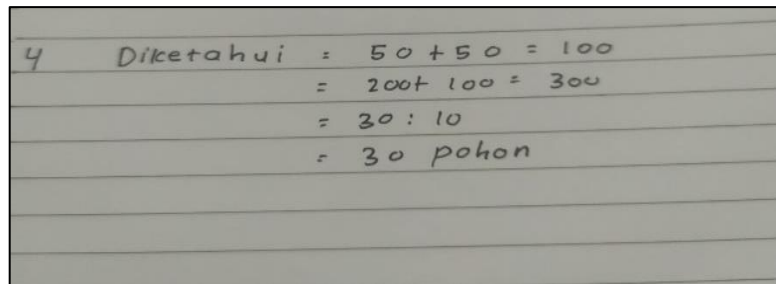 4 Diketahui = 50 + 50 = 100
= 200 + 100 = 300
= 30 : 10
= 30 pohon